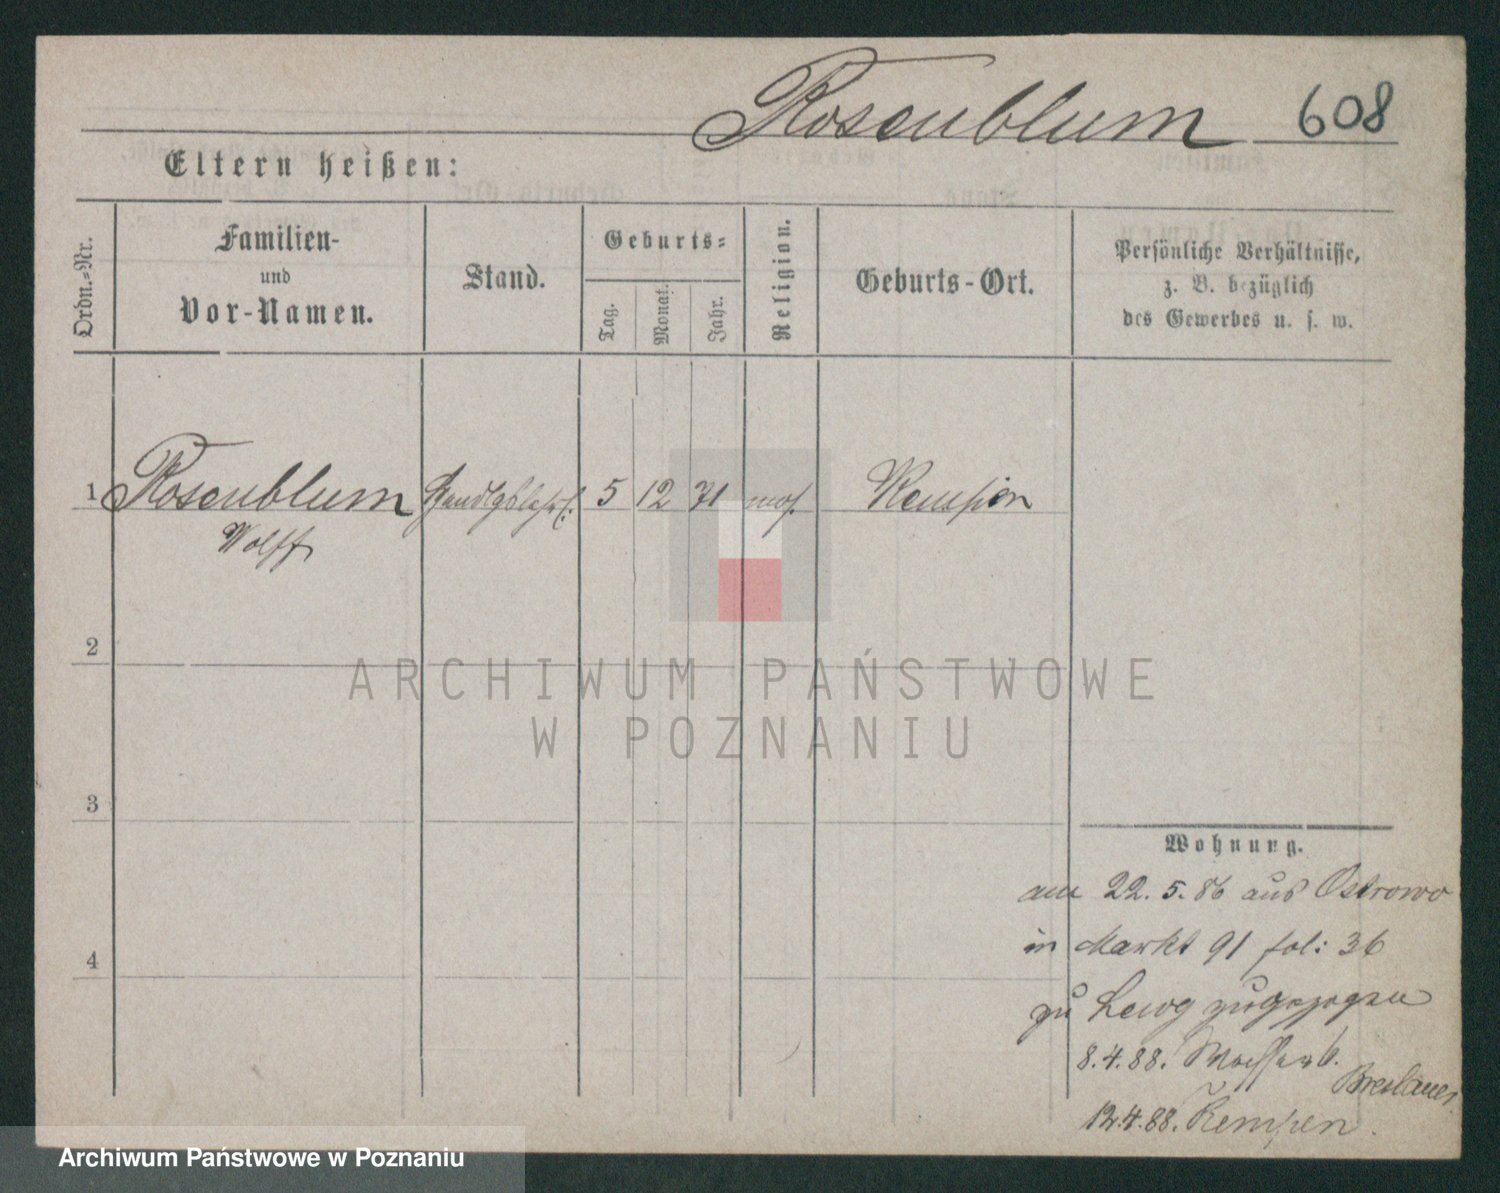 Rosenblum 608
Eltern heißen:
Ordn.-Nr.
Familien-
und
Vor-Namen.
Stand.
Geburts-
Tag.
Monat.
Jahr.
Religion.
Geburts-Ort.
Persönliche Verhältnisse,
z. B. bezüglich
des Gewerbes u. s. w.
1 Rosenblum 5 12 71 mos. Kempen
Wolff
2
ARCHIWUM PAŃSTWOWE
W POZNANIU
3
Wohnung.
am 22. 5. 86 aus Ostrowo
in Markt 91 fol: 36
4
zu zugezogen
8.4.88.
Breslauer
12.4.88. Kempen.
Archiwum Państwowe w Poznaniu